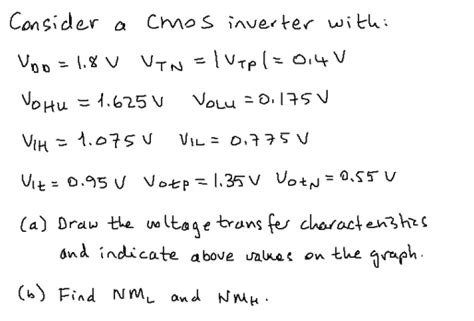 Consider a CMOS inverter with:
VDD = 1.8 V VTN = |VTP| = 0.4 V
VOHU = 1.625 V VOLU = 0.175 V
VIH = 1.075 V VIL = 0.775 V
VIt = 0.95 V VOtP = 1.35 V VOtN = 0.55 V
(a) Draw the voltage transfer characteristics
and indicate above values on the graph.
(b) Find NML and NMH.